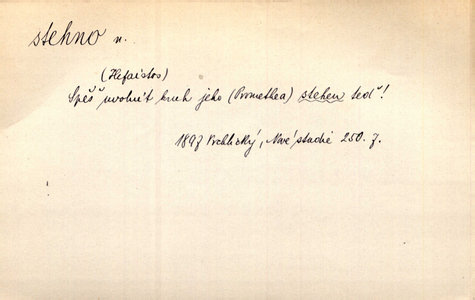 stehno n.
(Hefaistos)
Spěš uvolnit kruh jeho (Promethea) stehen teď!
1897 Vrchlický, Nové studie 250. J.